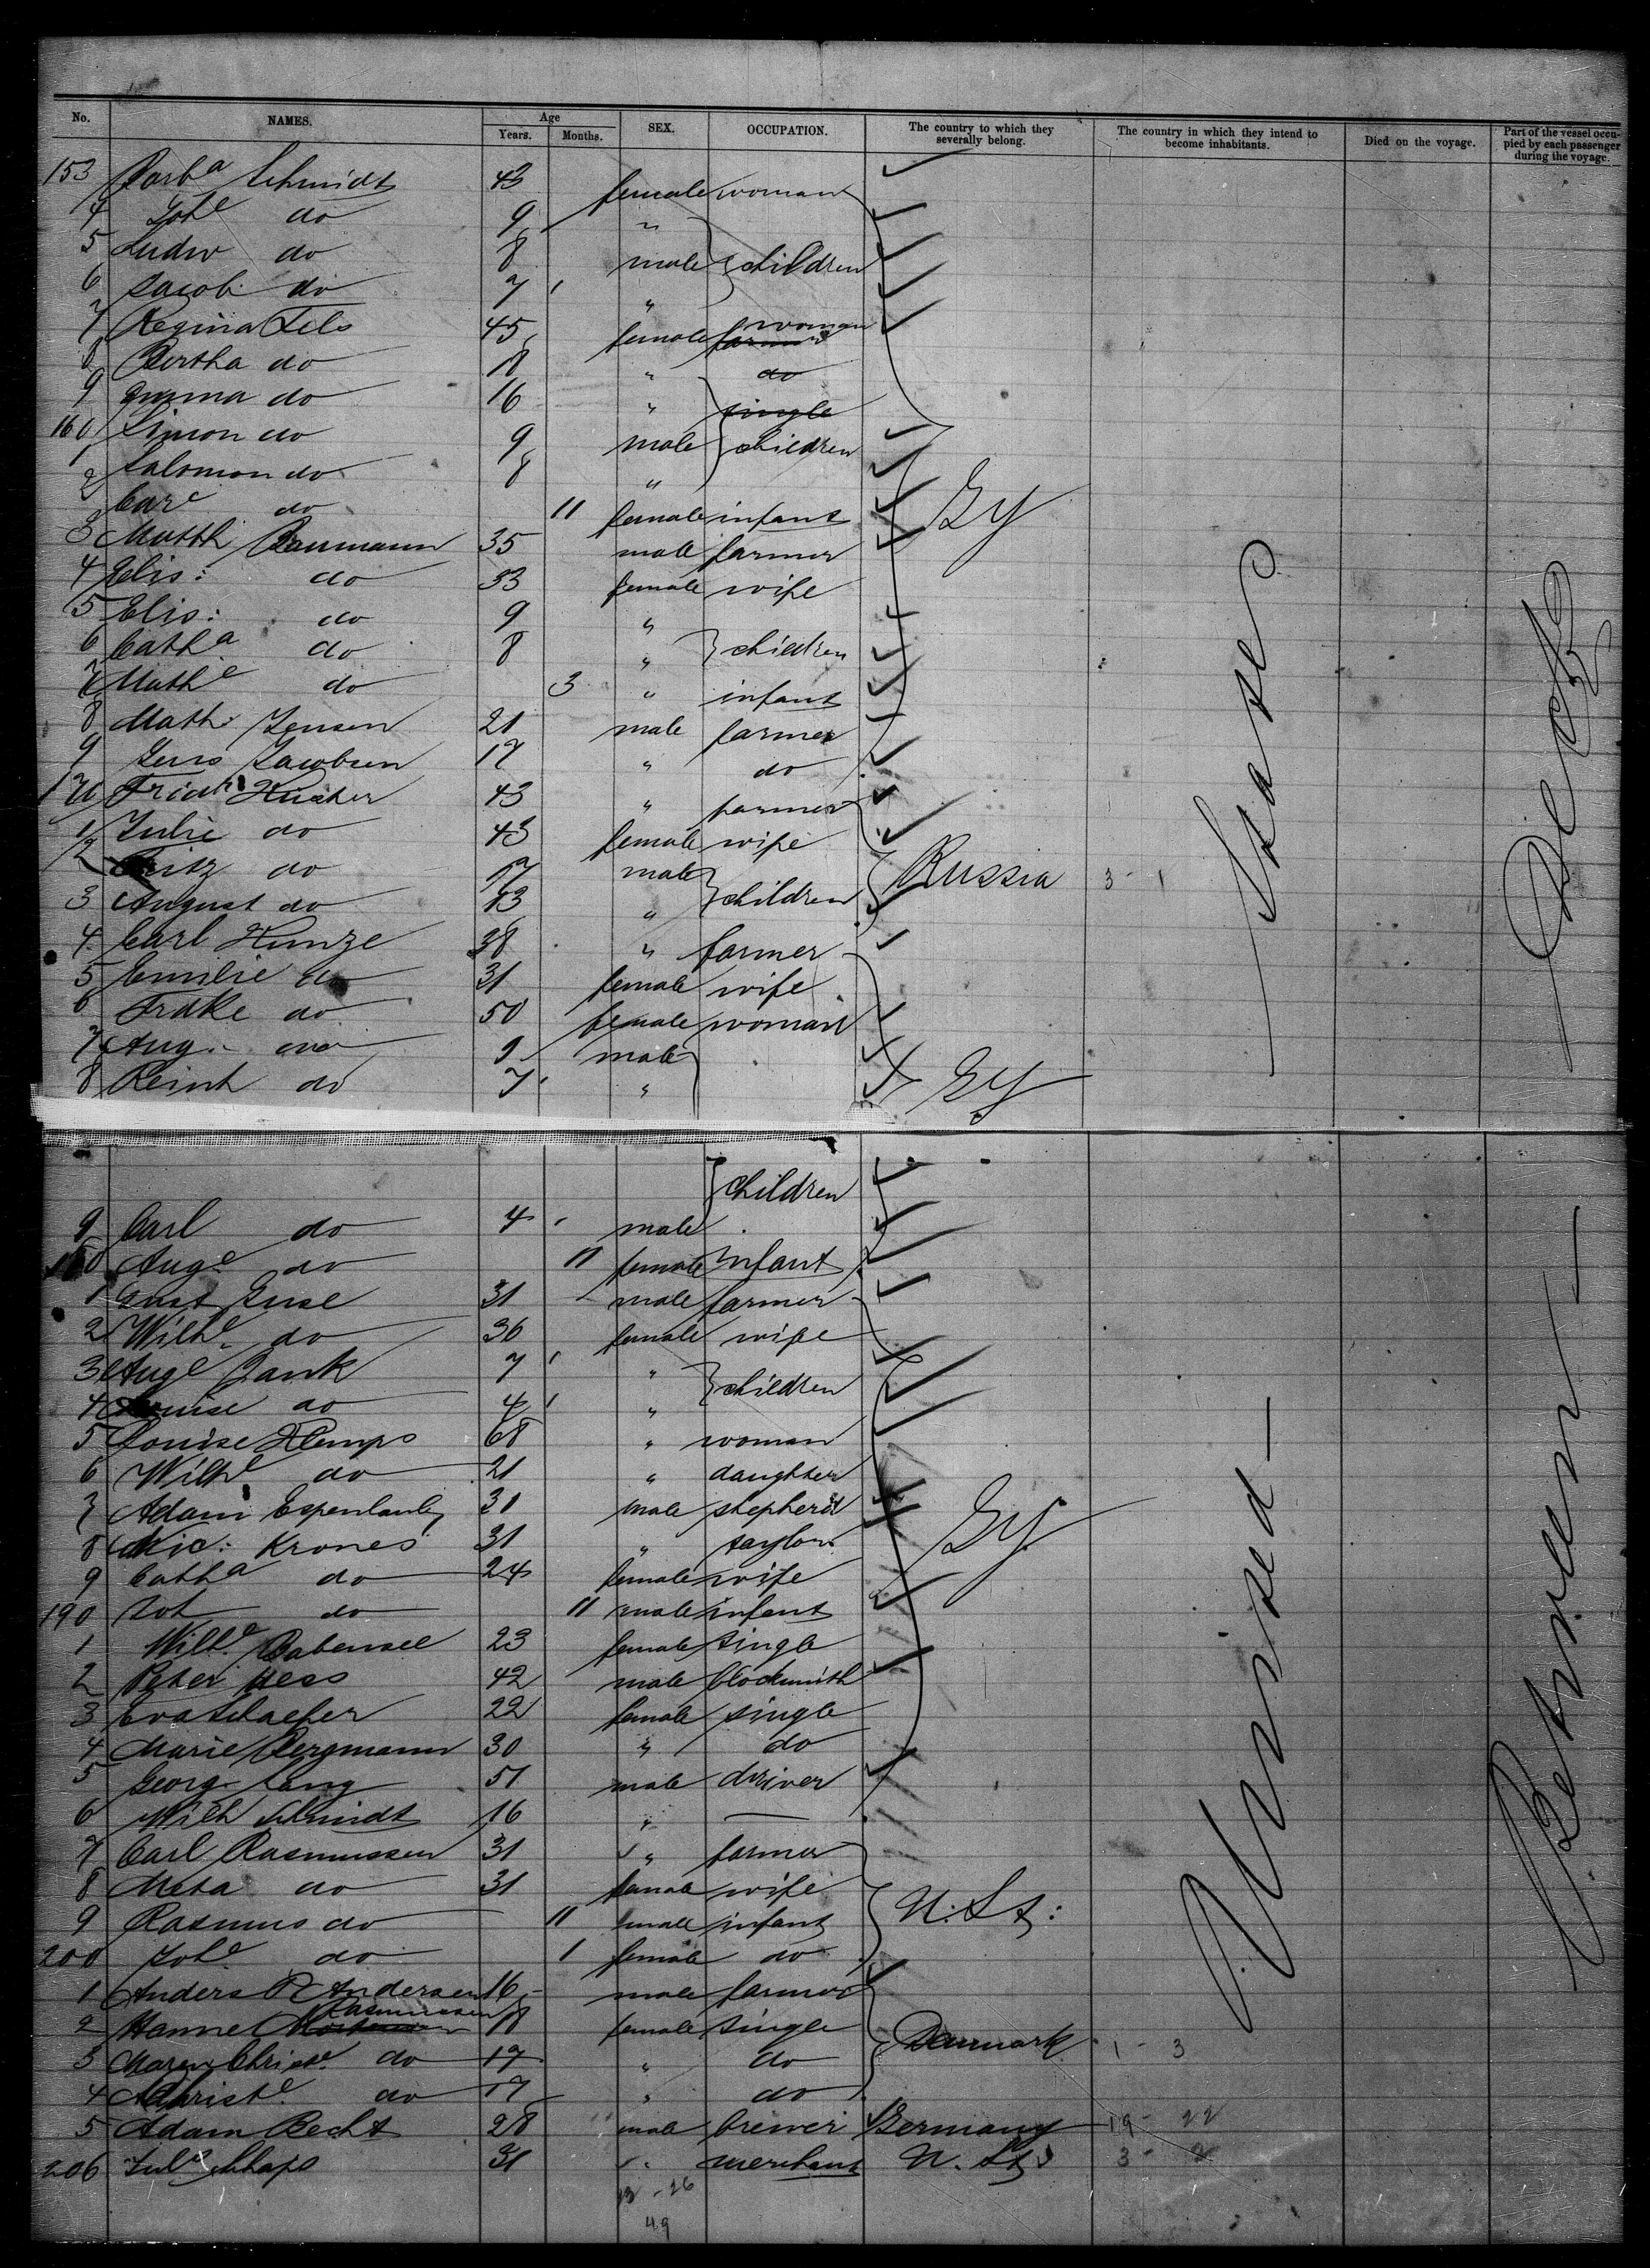 No. NAMES. Age Years. Months. SEX. OCCUPATION. The country to which they severally belong. The country in which they intend to become inhabitants. Died on the voyage. Part of the vessel occupied by each passenger during the voyage.
153 Barba Schmidt 43 female woman
4 Johe do 9 "
5 Ludw do 8 male children
6 Jacob do 7 "
7 Regina Fels 45 female woman farmer
8 Bertha do 18 " do
9 Emma do 16 " single
160 Simon do 9 male children
1 Salomon do 8 "
2 Care do 11 female infant Gy
3 Matth Baumann 35 male farmer
4 Elis: do 33 female wife
5 Elis: do 9 "
6 Catha do 8 " children
7 Mathe do 3 " infant
8 Math: Jensen 21 male farmer
9 Jens Jacobsen 17 " do
170 Friedr 43 " farmer
1 Julie do 43 female wife
2 Fritz do 17 male Russia 3 - 1
3 August do 13 " children
4 Carl Kunze 38 " farmer
5 Emilie do 31 female wife
6 Frdke do 50 female woman
7 Aug. do 9 male
8 Reinh do 7 " Gy
children
9 Carl do 4 male
180 Auge do 11 female infant
1 Gust Guse 31 male farmer
2 Wilhe do 36 female wife
3 Auge Zank 7 "
4 Louise do 4 " children
5 Louise Kemps 68 " woman
6 Wilhe do 21 " daughter
7 Adam Espenlaub 31 male shepherd
8 Nic: Krones 31 " taylor Gy
9 Catha do 24 female wife
190 Joh do 11 male infant
1 Wilhe Babensee 23 female single
2 Peter Hess 42 male blocksmith
3 Eva Schaefer 22 female single
4 Marie Bergmann 30 " do
5 Georg Lang 51 male driver
6 Wilh Schmidt 16 "
7 Carl Rasmussen 31 " farmer
8 Meta do 31 female wife
9 Rasmus do 11 male infant U. St:
200 Johe do 1 female do
1 Anders R Andersen 16 male farmer
2 Hanne Rasmussen 18 female single
3 Maren Christe do 17 " do Danmark 1 - 3
4 Christe do 17 " do
5 Adam Becht 28 male brewer Germany 19 - 22
206 Jul. 31 " merchant U. St. 3 - 2
13 - 26
49
United
States
Between
Decks